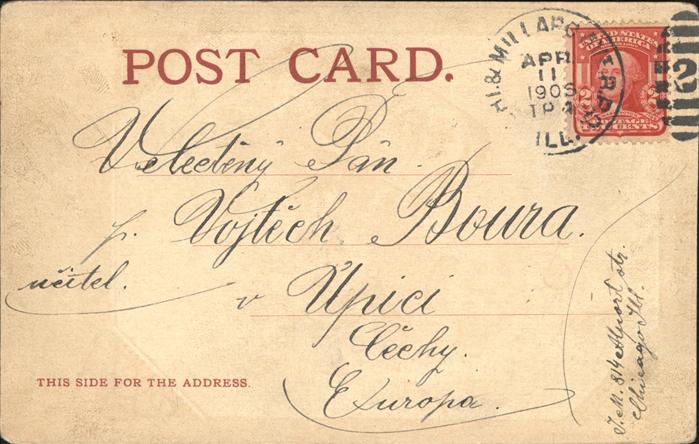 POST CARD.
HI. & MILLARD
APR
11
1905
TR 4
ILL.
R.P.O.
UNITED STATES
OF AMERICA
2 2
POSTAGE
TWO CENTS
2
Velectěný Pán
p. Vojtěch Boura.
učitel.
v Úpici
Čechy.
Europa.
THIS SIDE FOR THE ADDRESS.
J. M. 814 str.
Chicago Ill.